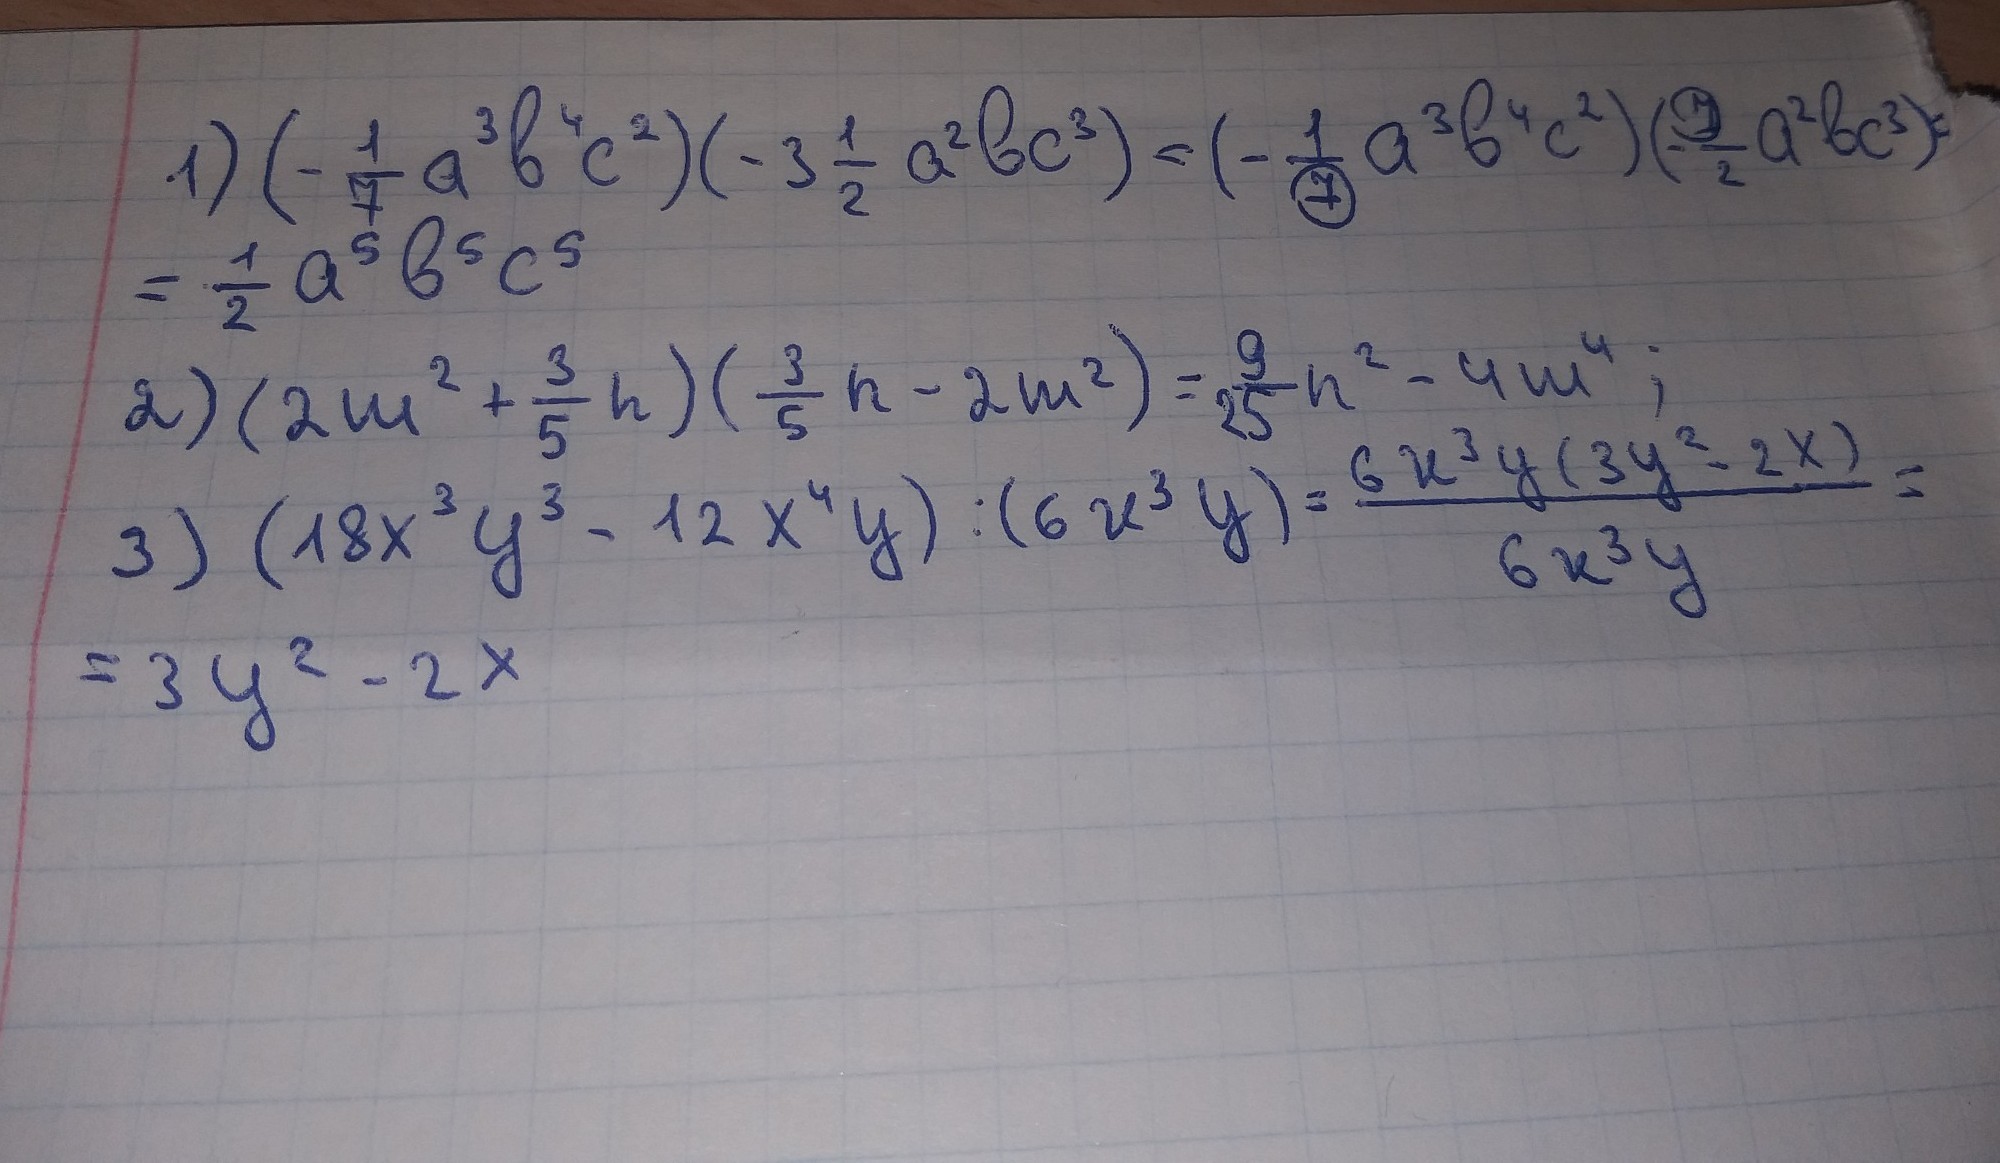 1) (-1/7 a³b⁴c²)(-3 1/2 a²bc³) = (-1/7 a³b⁴c²)(-7/2 a²bc³) =
= 1/2 a⁵b⁵c⁵
2) (2m² + 3/5 n)(3/5 n - 2m²) = 9/25 n² - 4m⁴;
3) (18x³y³ - 12x⁴y) : (6x³y) = 6x³y(3y² - 2x)/6x³y =
= 3y² - 2x